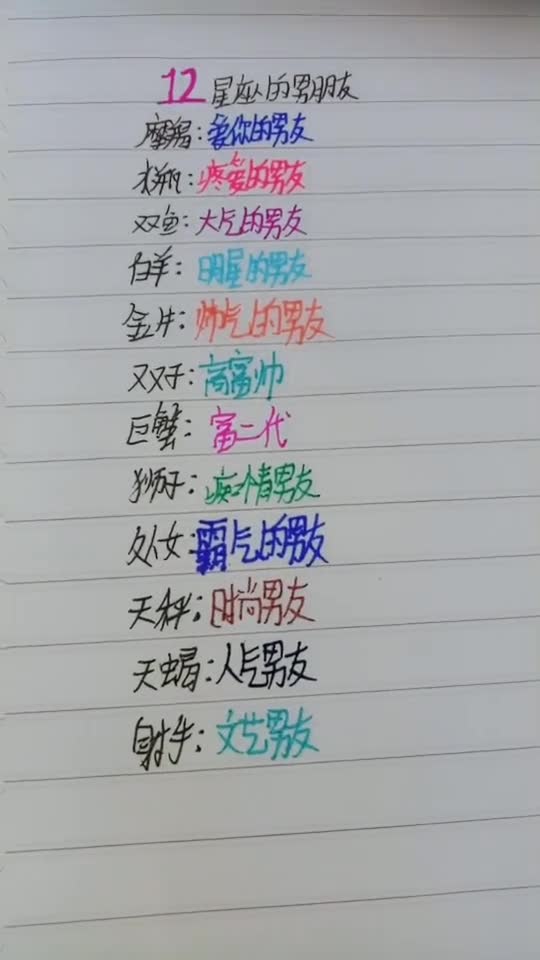 12星座的男朋友
摩羯:爱你的男友
水瓶:疼爱的男友
双鱼:大气的男友
白羊:明星的男友
金牛:帅气的男友
双子:高富帅
巨蟹:富二代
狮子:痴情男友
处女:霸气的男友
天秤:时尚男友
天蝎:人气男友
射手:文艺男友